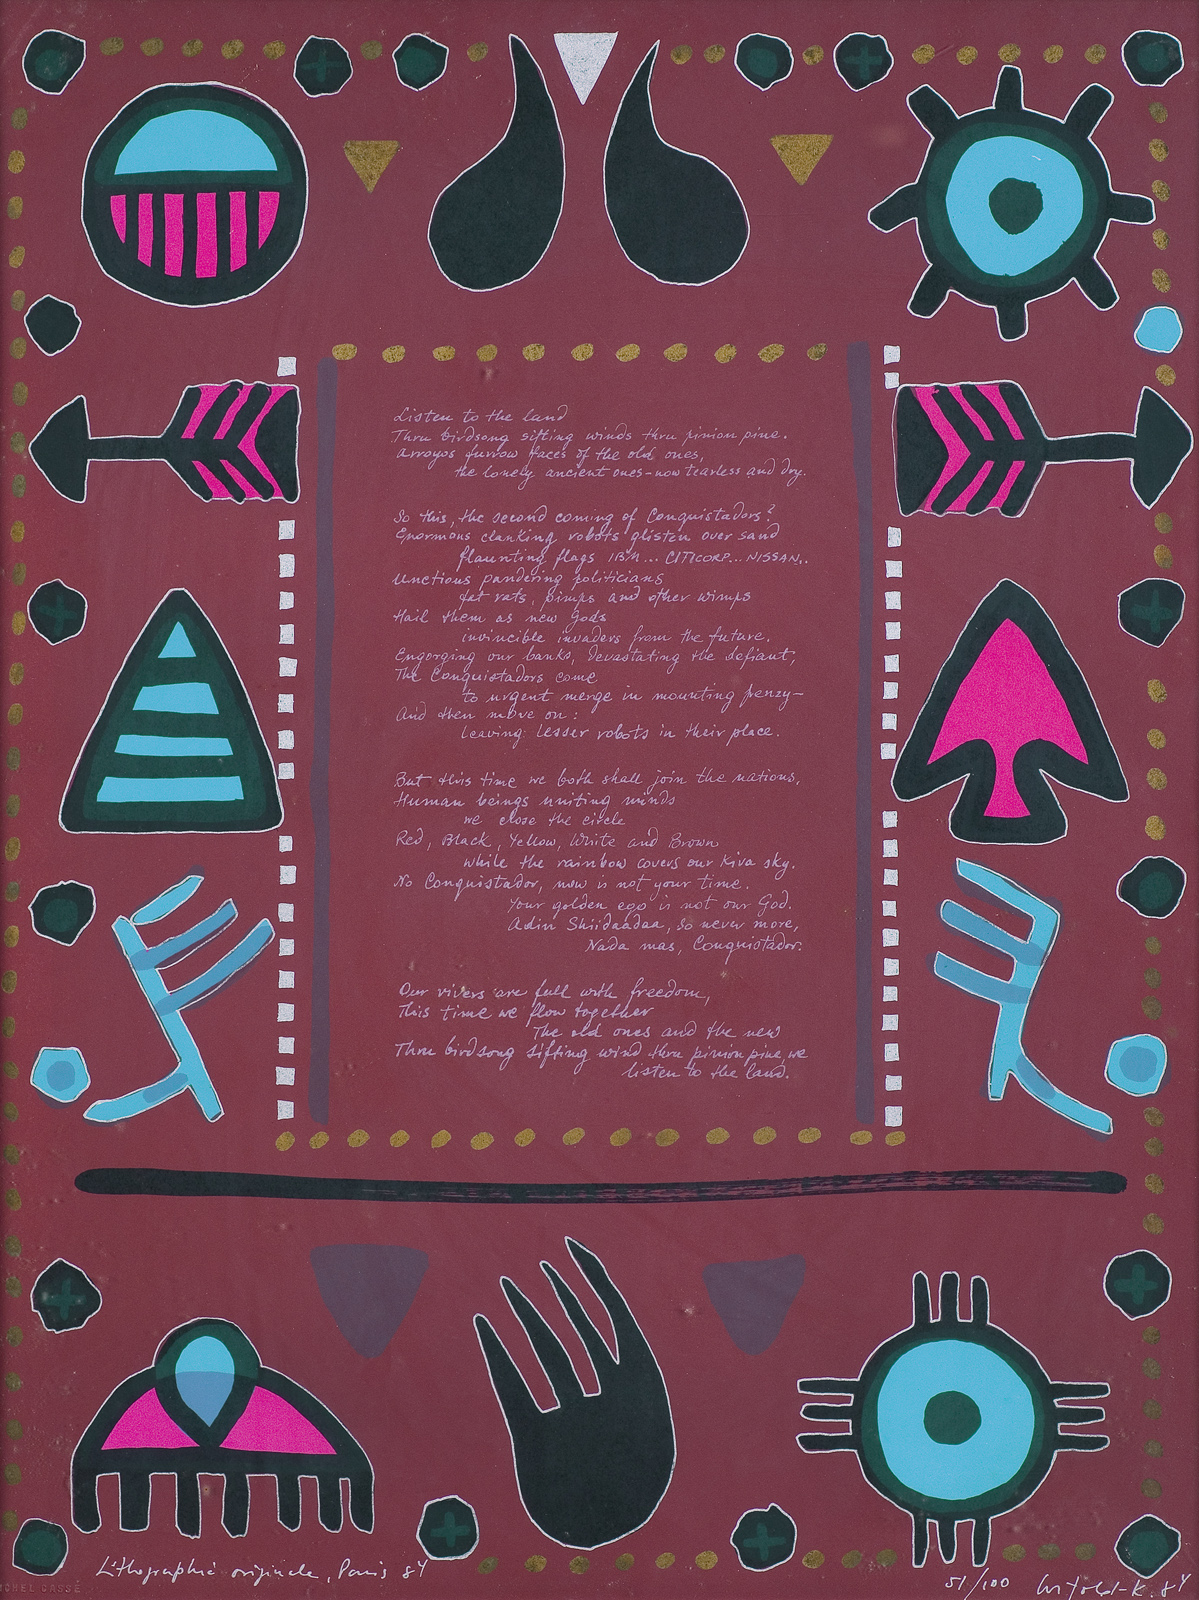 Listen to the land
Thru birdsong sifting winds thru pinion pine.
Arroyos furrow faces of the old ones,
the lonely ancient ones-now tearless and dry.
So this, the second coming of Conquistadors?
Enormous clanking robots glisten over sand
flaunting flags IBM... CITICORP... NISSAN..
Unctious pandering politicians
fat rats, pimps and other wimps
Hail them as new Gods
invincible invaders from the future.
Engorging our banks, devastating the defiant,
The Conquistadors come
to urgent merge in mounting frenzy-
And then move on:
Leaving: lesser robots in their place.
But this time we both shall join the nations,
Human beings uniting minds
we close the circle
Red, Black, Yellow, White and Brown
while the rainbow covers our Kiva sky.
No Conquistador, now is not your time.
Your golden ego is not our God.
Adin Shiidaadaa, so never more,
Nada mas, Conquistador.
Our rivers are full with freedom,
This time we flow together
The old ones and the new
Thru birdsong sifting wind thru pinion pine, we
listen to the land.
Lithographie originale, Paris 84
51/100 Witold-K. 84